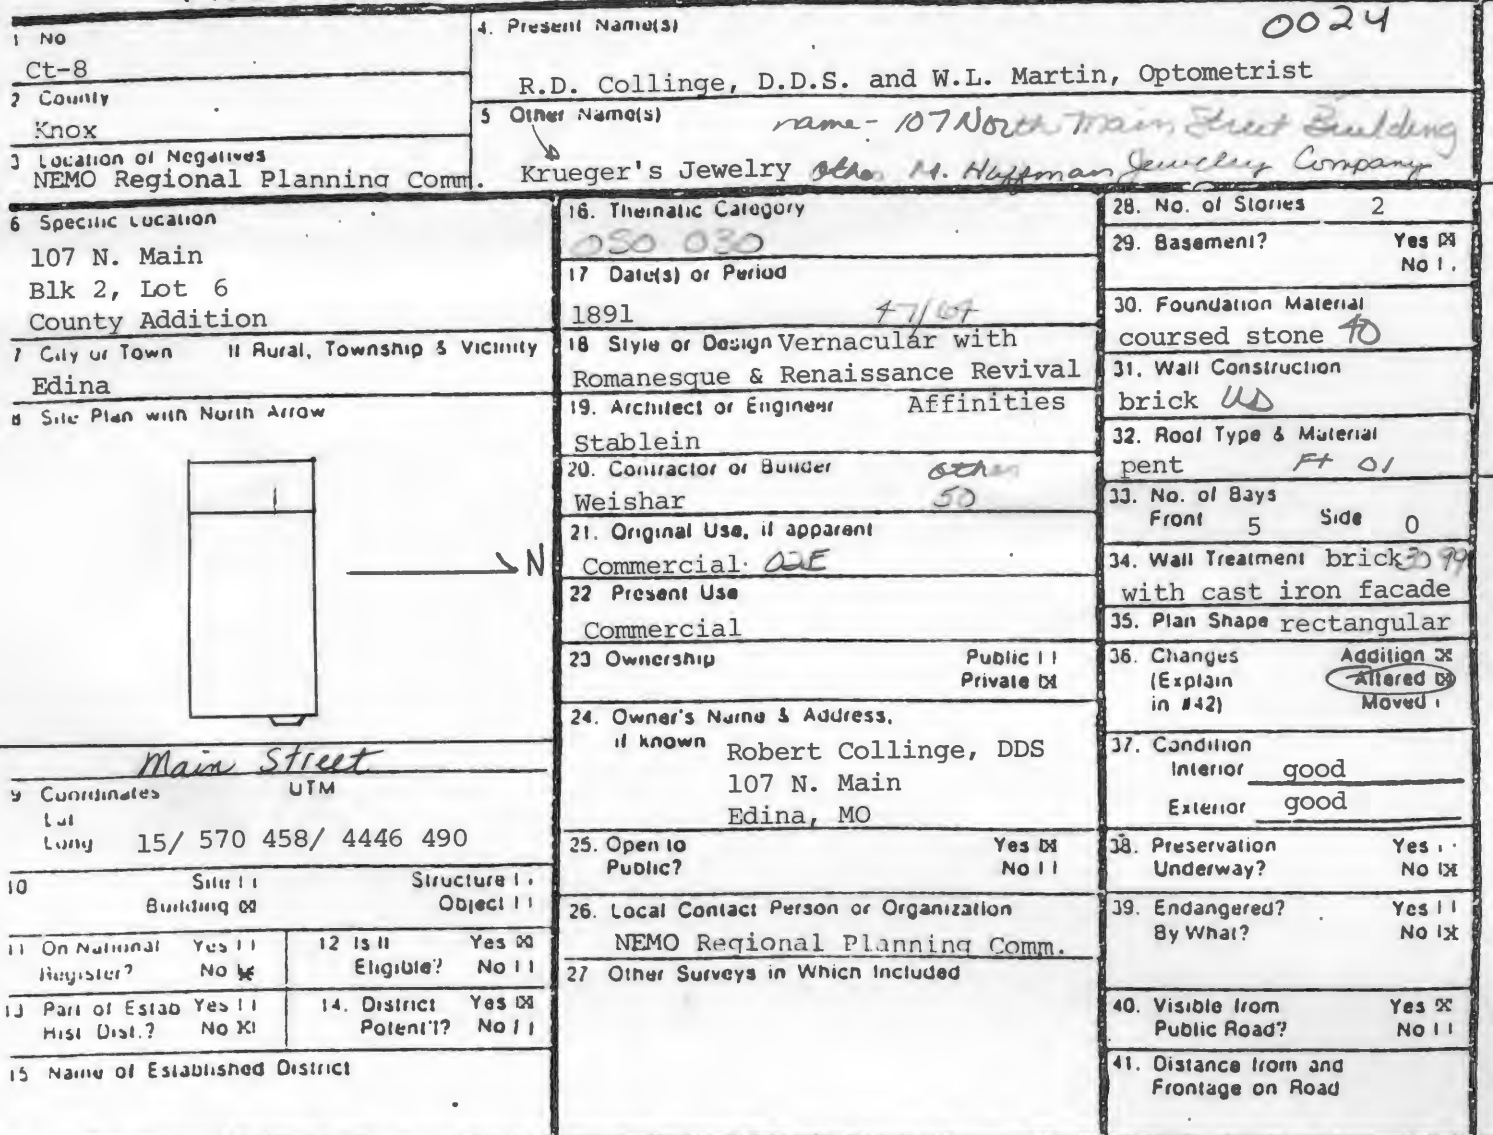 0024
1 No
Ct-8
4. Present Name(s)
R.D. Collinge, D.D.S. and W.L. Martin, Optometrist
2 County
Knox
5 Other Name(s)
name - 107 North Main Street Building
Krueger's Jewelry other M. Huffman Jewelry Company
3 Location of Negatives
NEMO Regional Planning Comm.
6 Specific Location
107 N. Main
Blk 2, Lot 6
County Addition
7 City or Town If Rural, Township & Vicinity
Edina
8 Site Plan with North Arrow
N
Main Street
9 Coordinates UTM
Lat
Long 15/ 570 458/ 4446 490
10 Site Structure
Building ☒ Object
11 On National Register? Yes No ☒
12 Is It Eligible? Yes ☒ No
13 Part of Estab Hist Dist.? Yes No ☒
14. District Potent'l? Yes ☒ No
15 Name of Established District
16. Thematic Category
050 030
17 Date(s) or Period
1891
18 Style or Design Vernacular with
Romanesque & Renaissance Revival
Affinities
19. Architect or Engineer
Stablein
20. Contractor or Builder other
Weishar 50
21. Original Use, if apparent
Commercial 02E
22 Present Use
Commercial
23 Ownership Public
Private ☒
24. Owner's Name & Address,
if known Robert Collinge, DDS
107 N. Main
Edina, MO
25. Open to Yes ☒
Public? No
26. Local Contact Person or Organization
NEMO Regional Planning Comm.
27 Other Surveys in Which Included
28. No. of Stories 2
29. Basement? Yes ☒
No
30. Foundation Material
coursed stone 40
31. Wall Construction
brick
32. Roof Type & Material
pent Ft 01
33. No. of Bays
Front 5 Side 0
34. Wall Treatment brick 30 99
with cast iron facade
35. Plan Shape rectangular
36. Changes Addition ☒
(Explain Altered ☒
in #42) Moved
37. Condition
Interior good
Exterior good
38. Preservation Yes
Underway? No ☒
39. Endangered? Yes
By What? No ☒
40. Visible from Yes ☒
Public Road? No
41. Distance from and
Frontage on Road